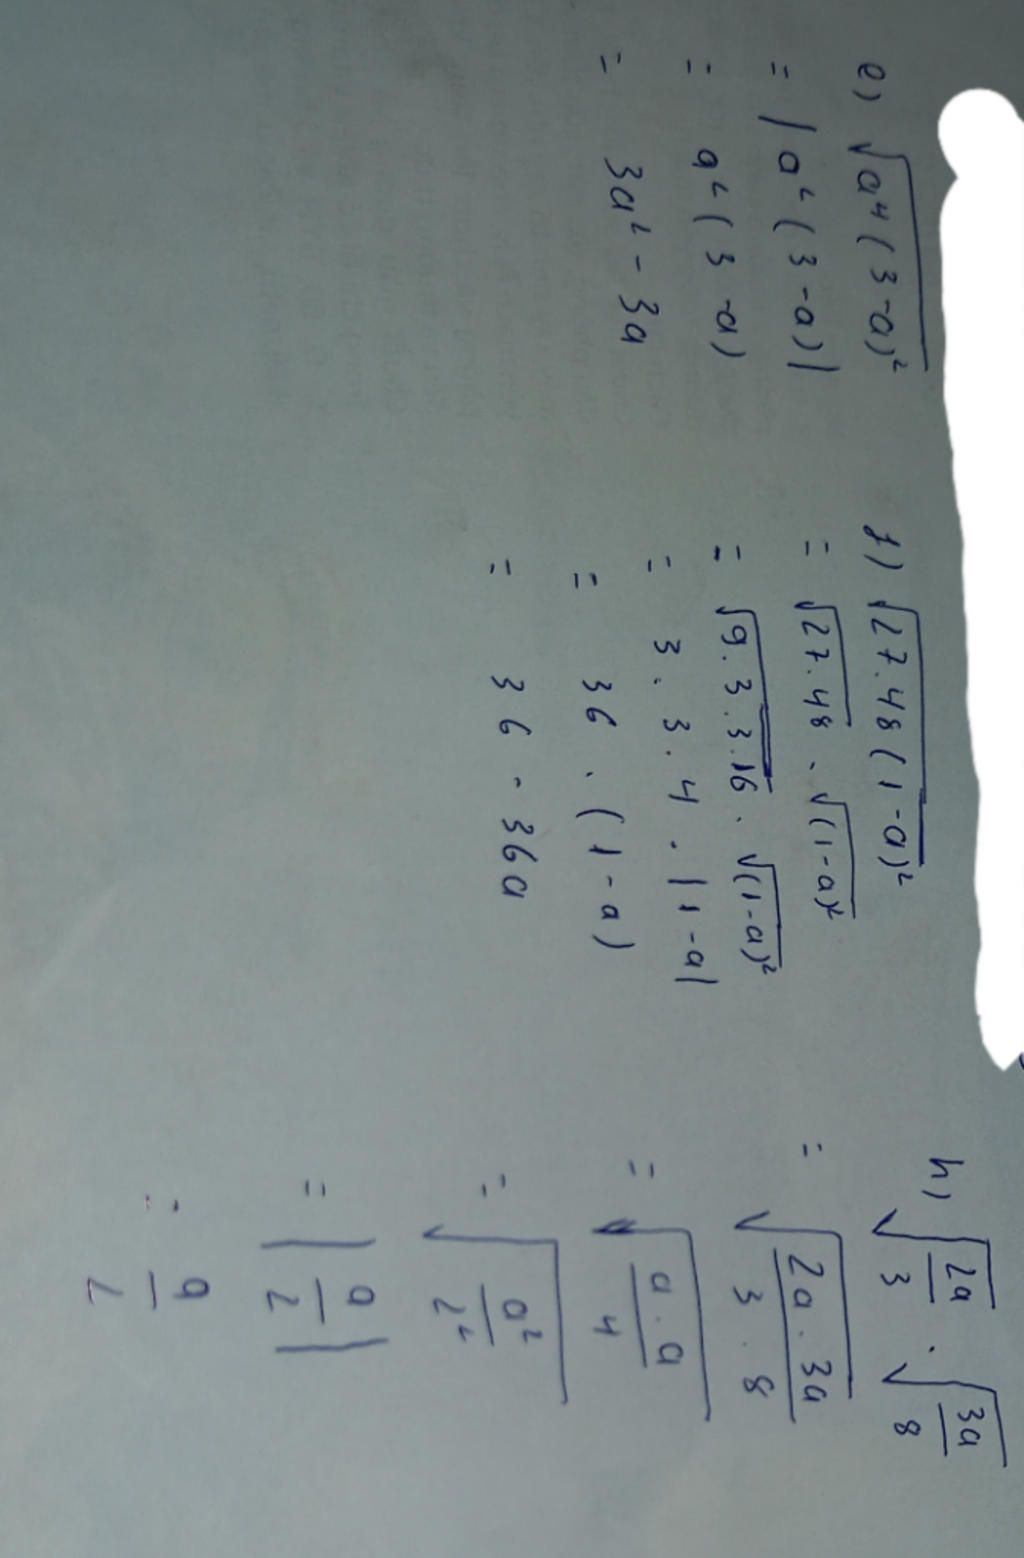 e) √(a⁴(3-a)²)
= |a²(3-a)|
= a²(3-a)
= 3a² - 3a
f) √(27.48(1-a)²)
= √(27.48) . √((1-a)²)
= √(9.3.3.16) . √((1-a)²)
= 3.3.4.|1-a|
= 36 . (1-a)
= 36 - 36a
h) √(2a/3) . √(3a/8)
= √((2a.3a)/(3.8))
= √((a.a)/4)
= √(a²/2²)
= |a/2|
= a/2